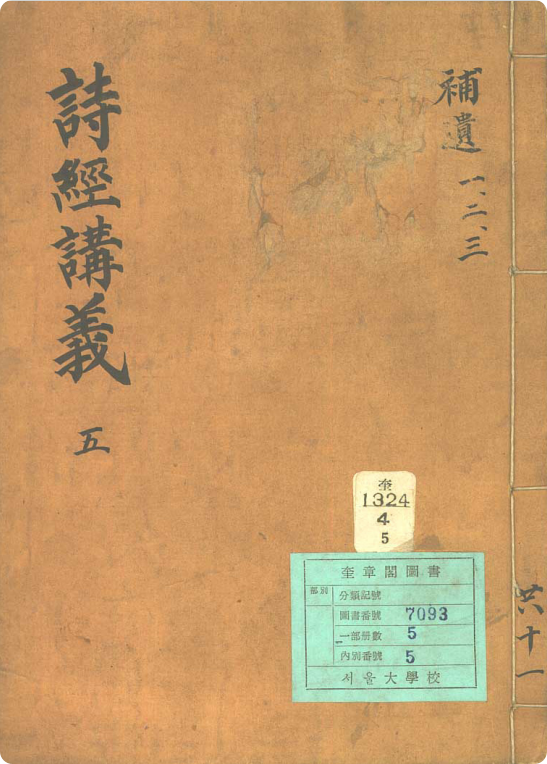 詩經講義 五
補遺 一、二、三
奎
1324
4
5
奎章閣圖書
部別
分類記號
圖書番號 7093
一部册數 5
內別番號 5
서울大學校
共十一